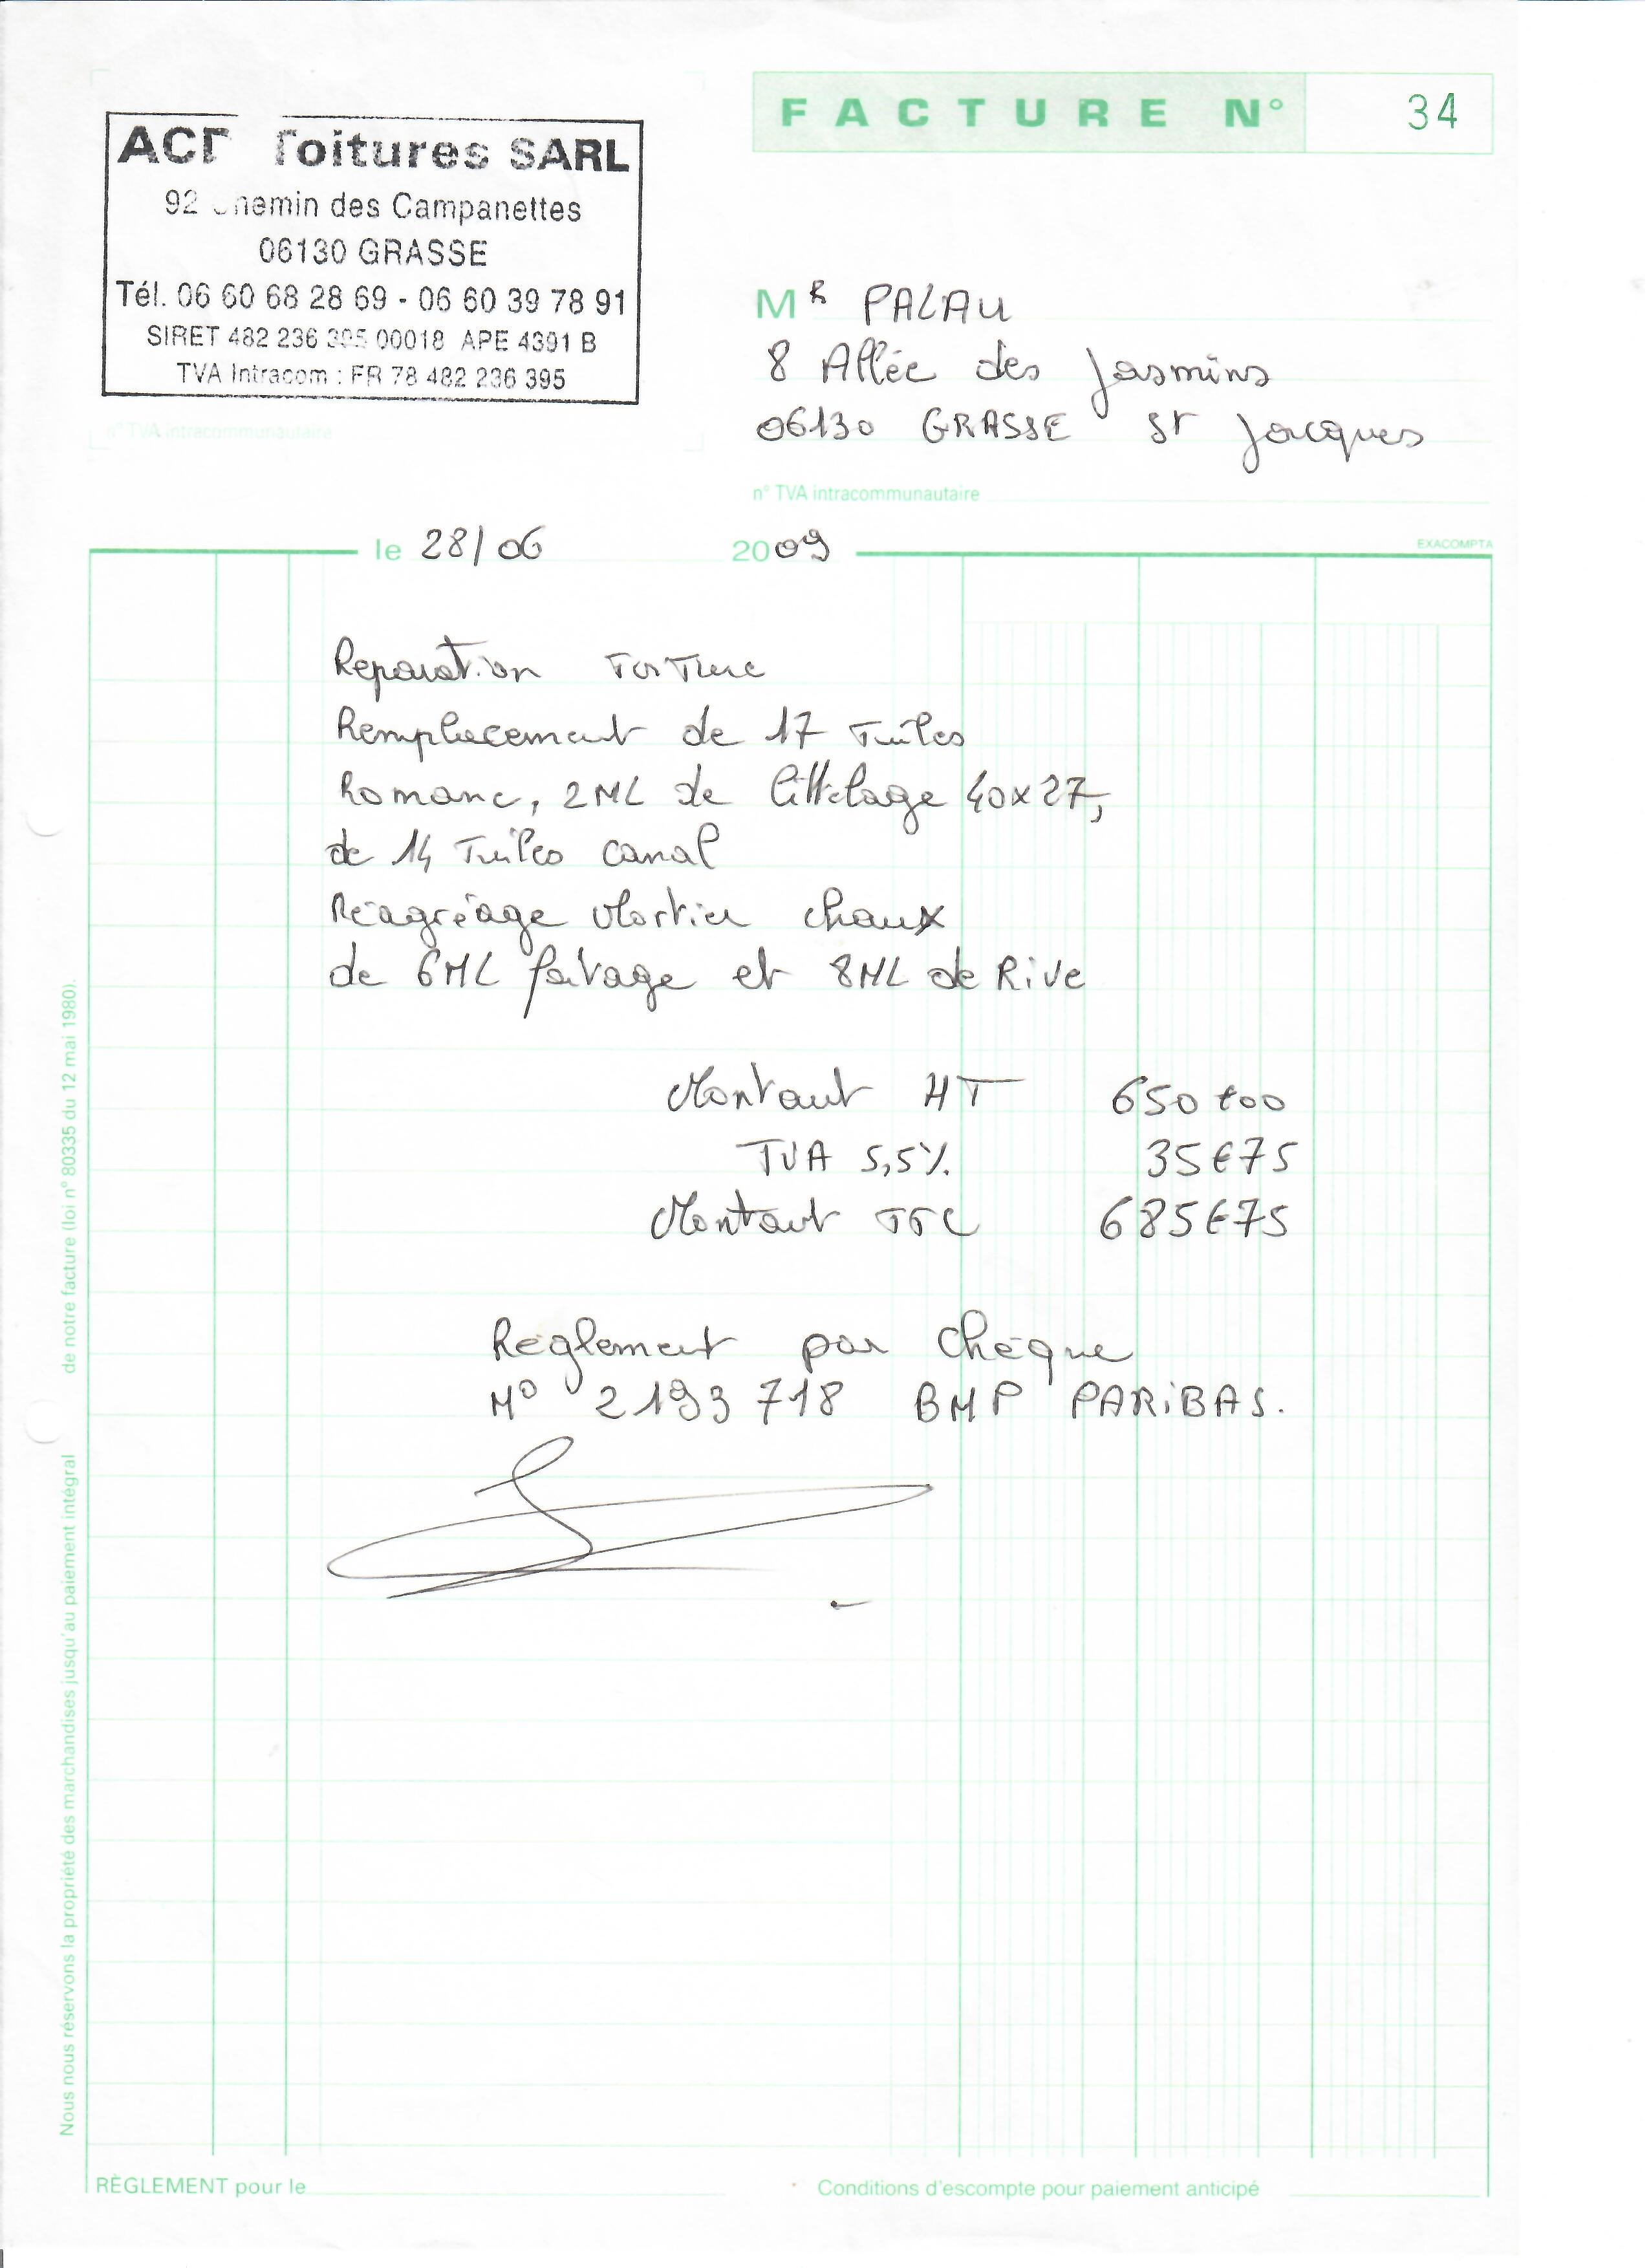 FACTURE N° 34
Toitures SARL
92 Chemin des Campanettes
06130 GRASSE
Tél. 06 60 68 28 69 - 06 60 39 78 91
SIRET 482 236 395 00018 APE 4391 B
TVA Intracom : FR 78 482 236 395
n° TVA intracommunautaire
MR PALAU
8 Allée des Jasmins
06130 GRASSE St Jacques
n° TVA intracommunautaire
le 28/06 2009
EXACOMPTA
Reparation Toiture
Remplacement de 17 Tuiles
Romane, 2ML de littelage 40x27,
de 14 Tuiles canal
Réagréage Mortier chaux
de 6ML faitage et 8ML de Rive
Montant HT 650€00
TVA 5,5% 35€75
Montant TTC 685€75
Réglement par Chèque
N° 2193718 BNP PARiBAS.
Nous nous réservons la propriété des marchandises jusqu'au paiement intégral de notre facture (loi n° 80335 du 12 mai 1980).
RÈGLEMENT pour le
Conditions d'escompte pour paiement anticipé